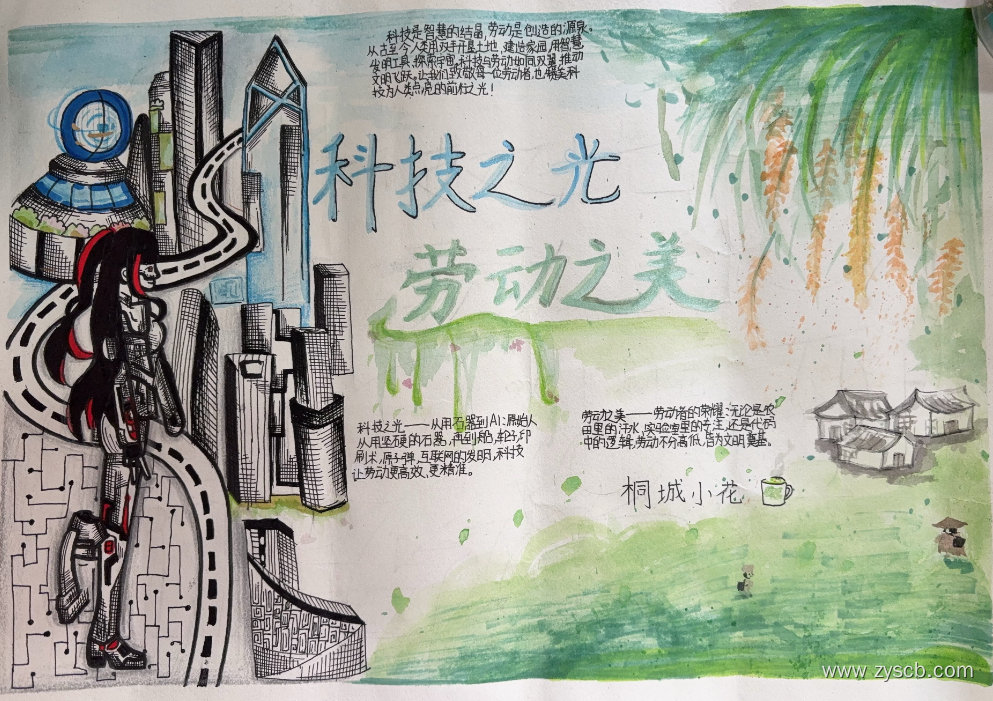 科技是智慧的结晶,劳动是创造的源泉。
从古至今人类用双手开垦土地,建造家园,用智慧
发明工具,探索宇宙。科技与劳动如同双翼,推动
文明飞跃。让我们致敬每一位劳动者,也赞美科
技为人类点亮的前行之光!
科技之光
劳动之美
科技之光——从用石器到AI:原始人
从用坚硬的石器,再到船,轮子,印
刷术,原子弹,互联网的发明,科技
让劳动更高效,更精准。
劳动之美——劳动者的荣耀:无论是农
田里的汗水,实验室里的专注,还是代码
中的逻辑,劳动不分高低,皆为文明奠基。
桐城小花
www.zyscb.com